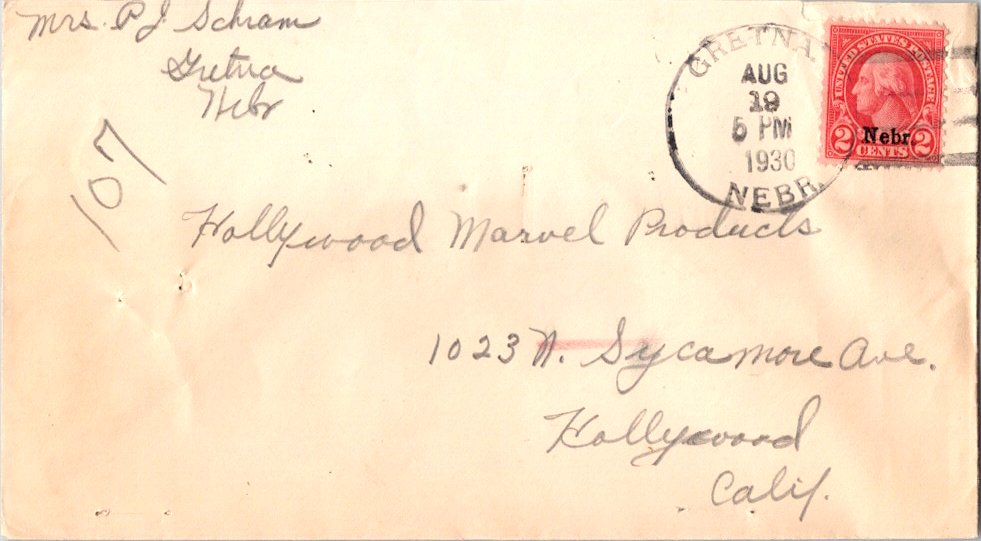 Mrs. P J Schram
Gretna
Nebr
107
GRETNA
AUG
19
5 PM
1930
NEBR.
UNITED STATES POSTAGE
Nebr.
2 CENTS 2
Hollywood Marvel Products
1023 N. Sycamore Ave.
Hollywood
Calif.